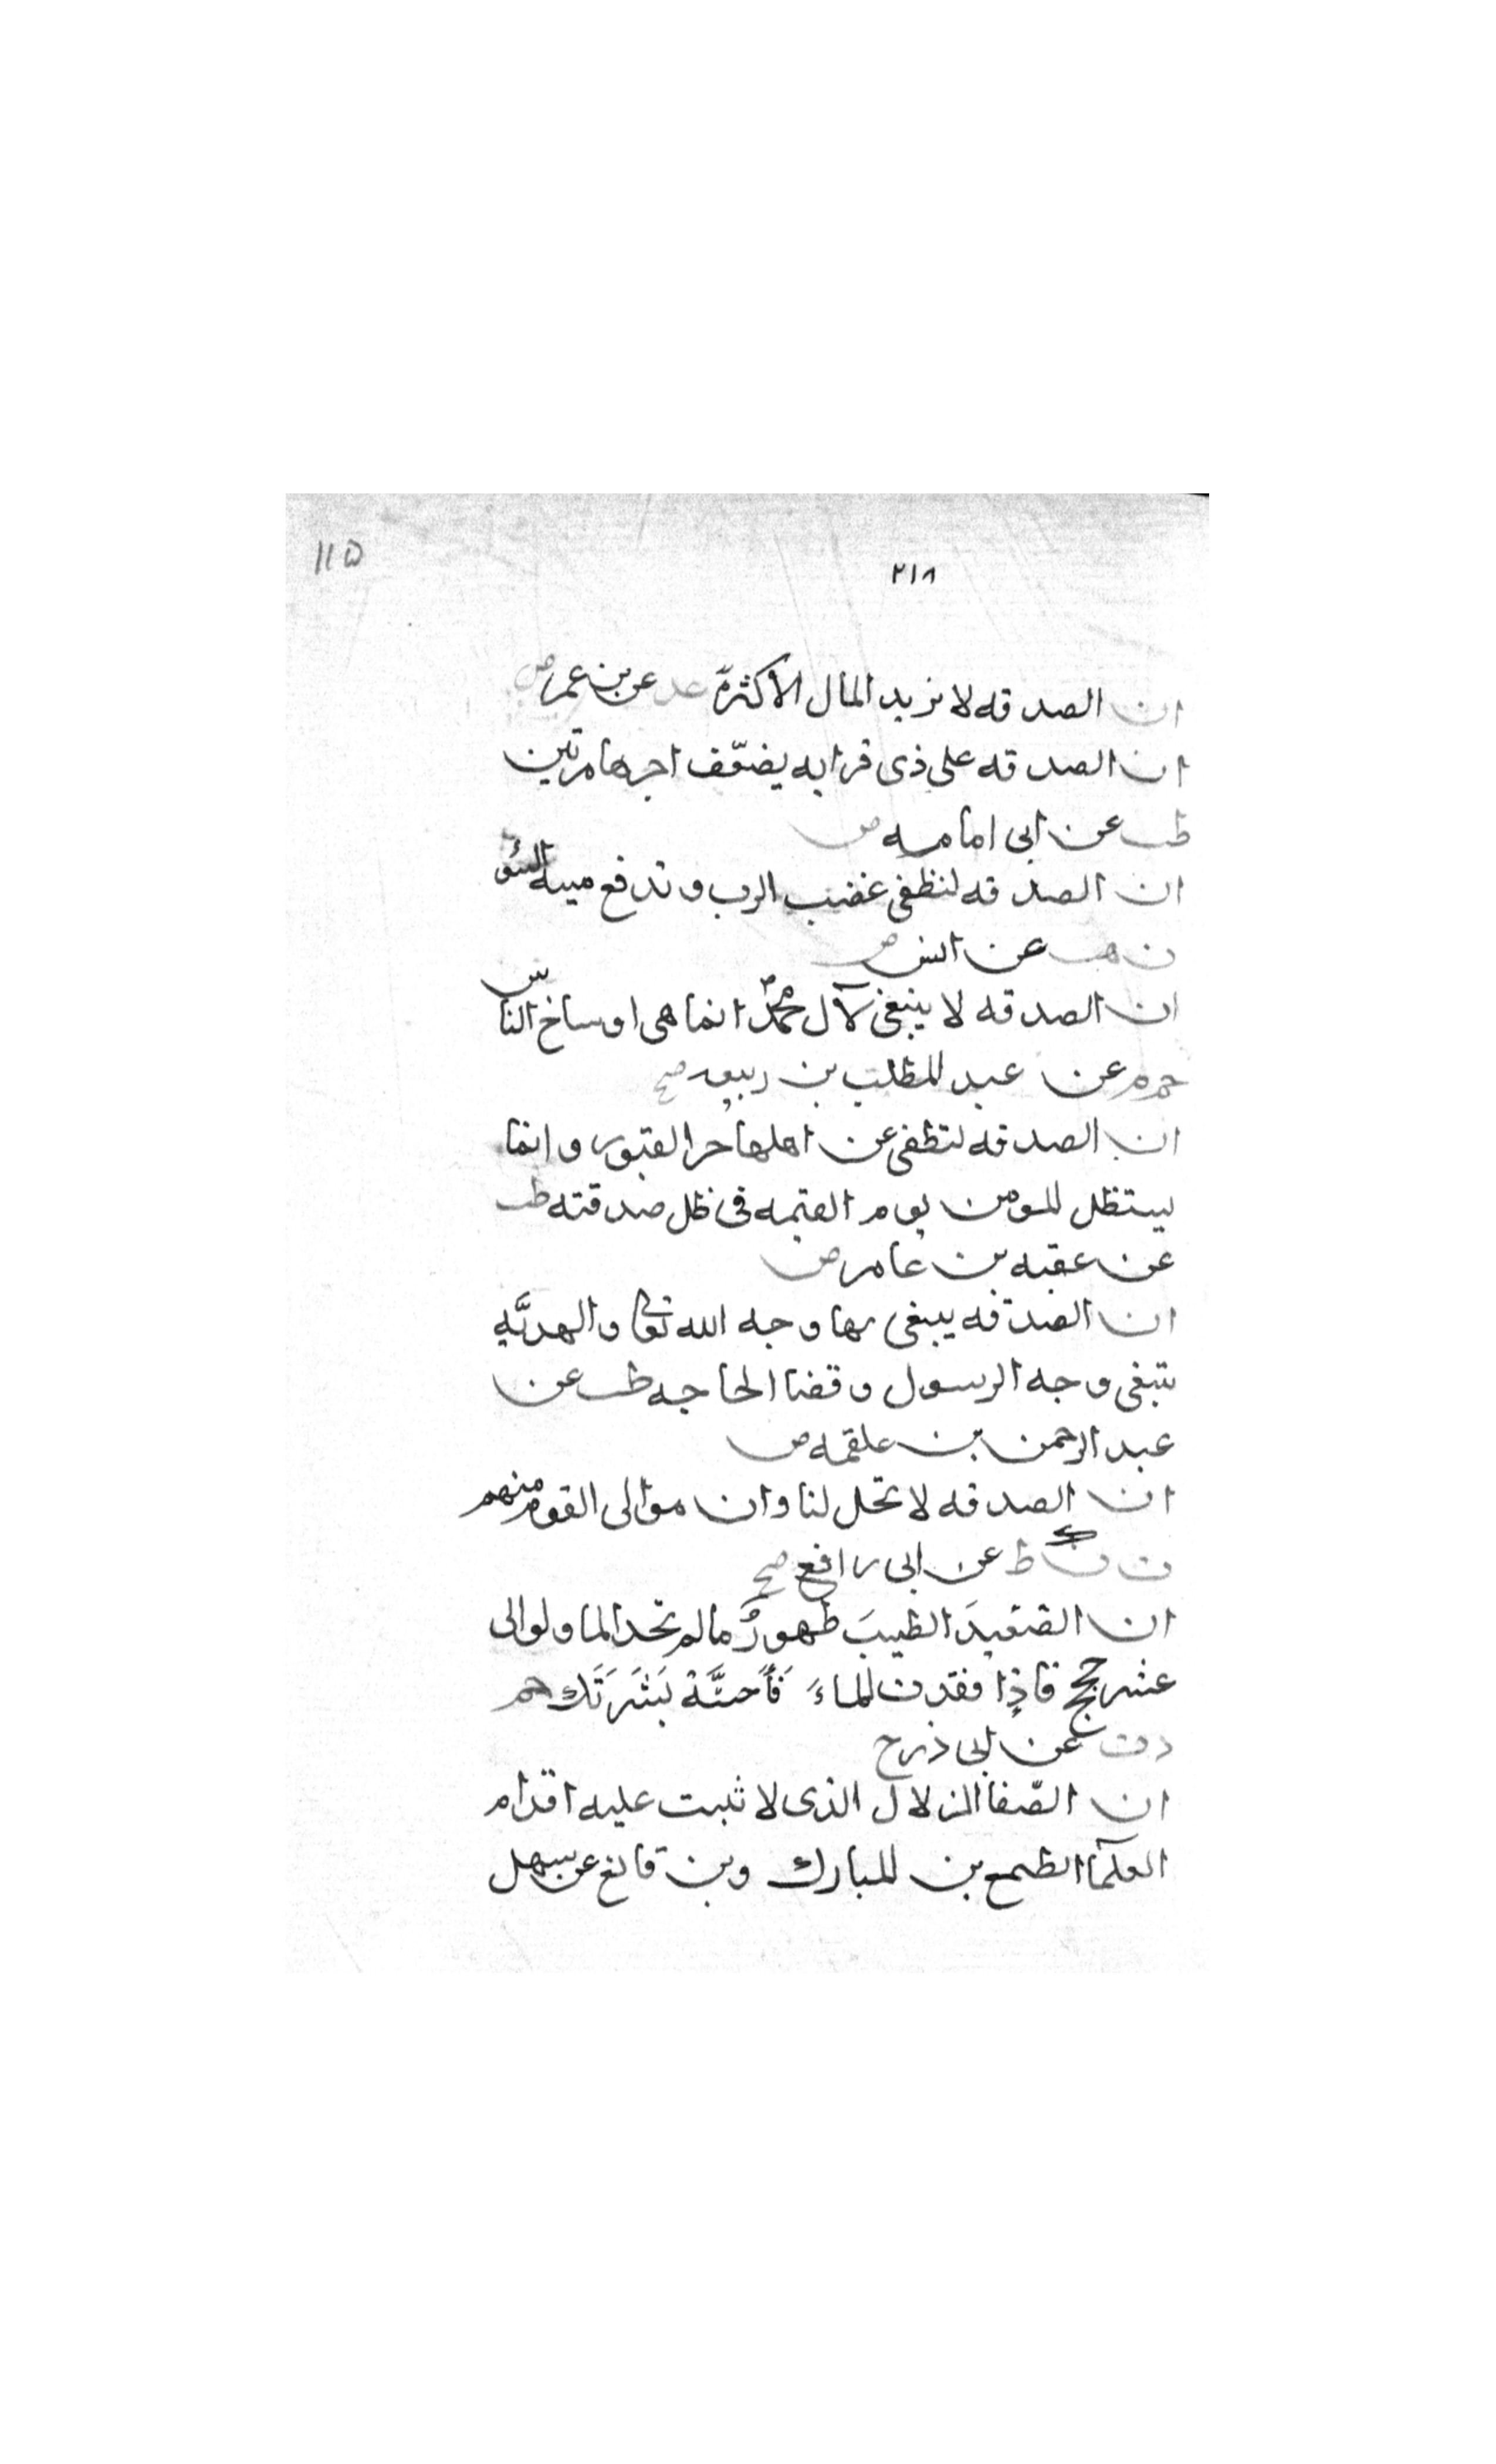 115
٢١٨
ان الصدقه لا تزيد المال الا كثرةً عد عن بن عمر ض
ان الصدقه على ذى قرابه يضعّف اجرها مرتين
طب عن ابى امامه ض
ان الصدقه لتطفى غضب الرب وتدفع ميته السّوء
ت حب عن انس ض
ان الصدقه لا ينبغى لآل محمّدٍ انما هى اوساخ الناس
حم م عن عبد المطلب بن ربيعه صح
ان الصدقه لتطفى عن اهلها حر القبور وانما
يستظل المومن يوم القيمه فى ظل صدقته طب
عن عقبه بن عامر ض
ان الصدقه يبتغى بها وجه الله تعالى والهديَّه
يبتغى وجه الرسول وقضا الحاجه طب عن
عبد الرحمن بن علقمه ض
ان الصدقه لا تحل لنا وان موالى القوم منهم
ت ن ك عن ابى رافع صح
ان الصّعيدَ الطيبَ طهورٌ ما لم تجد الما ولو الى
عشر حجج فاذِا وجدت الماءَ فَأَمسَّهُ بَشَرَتَك حم
د ت عن ابى ذر ح
ان الصّفا الزلال الذى لا تثبت عليه اقدام
العلمآ الطمع بن المبارك وبن قانع عن سهل